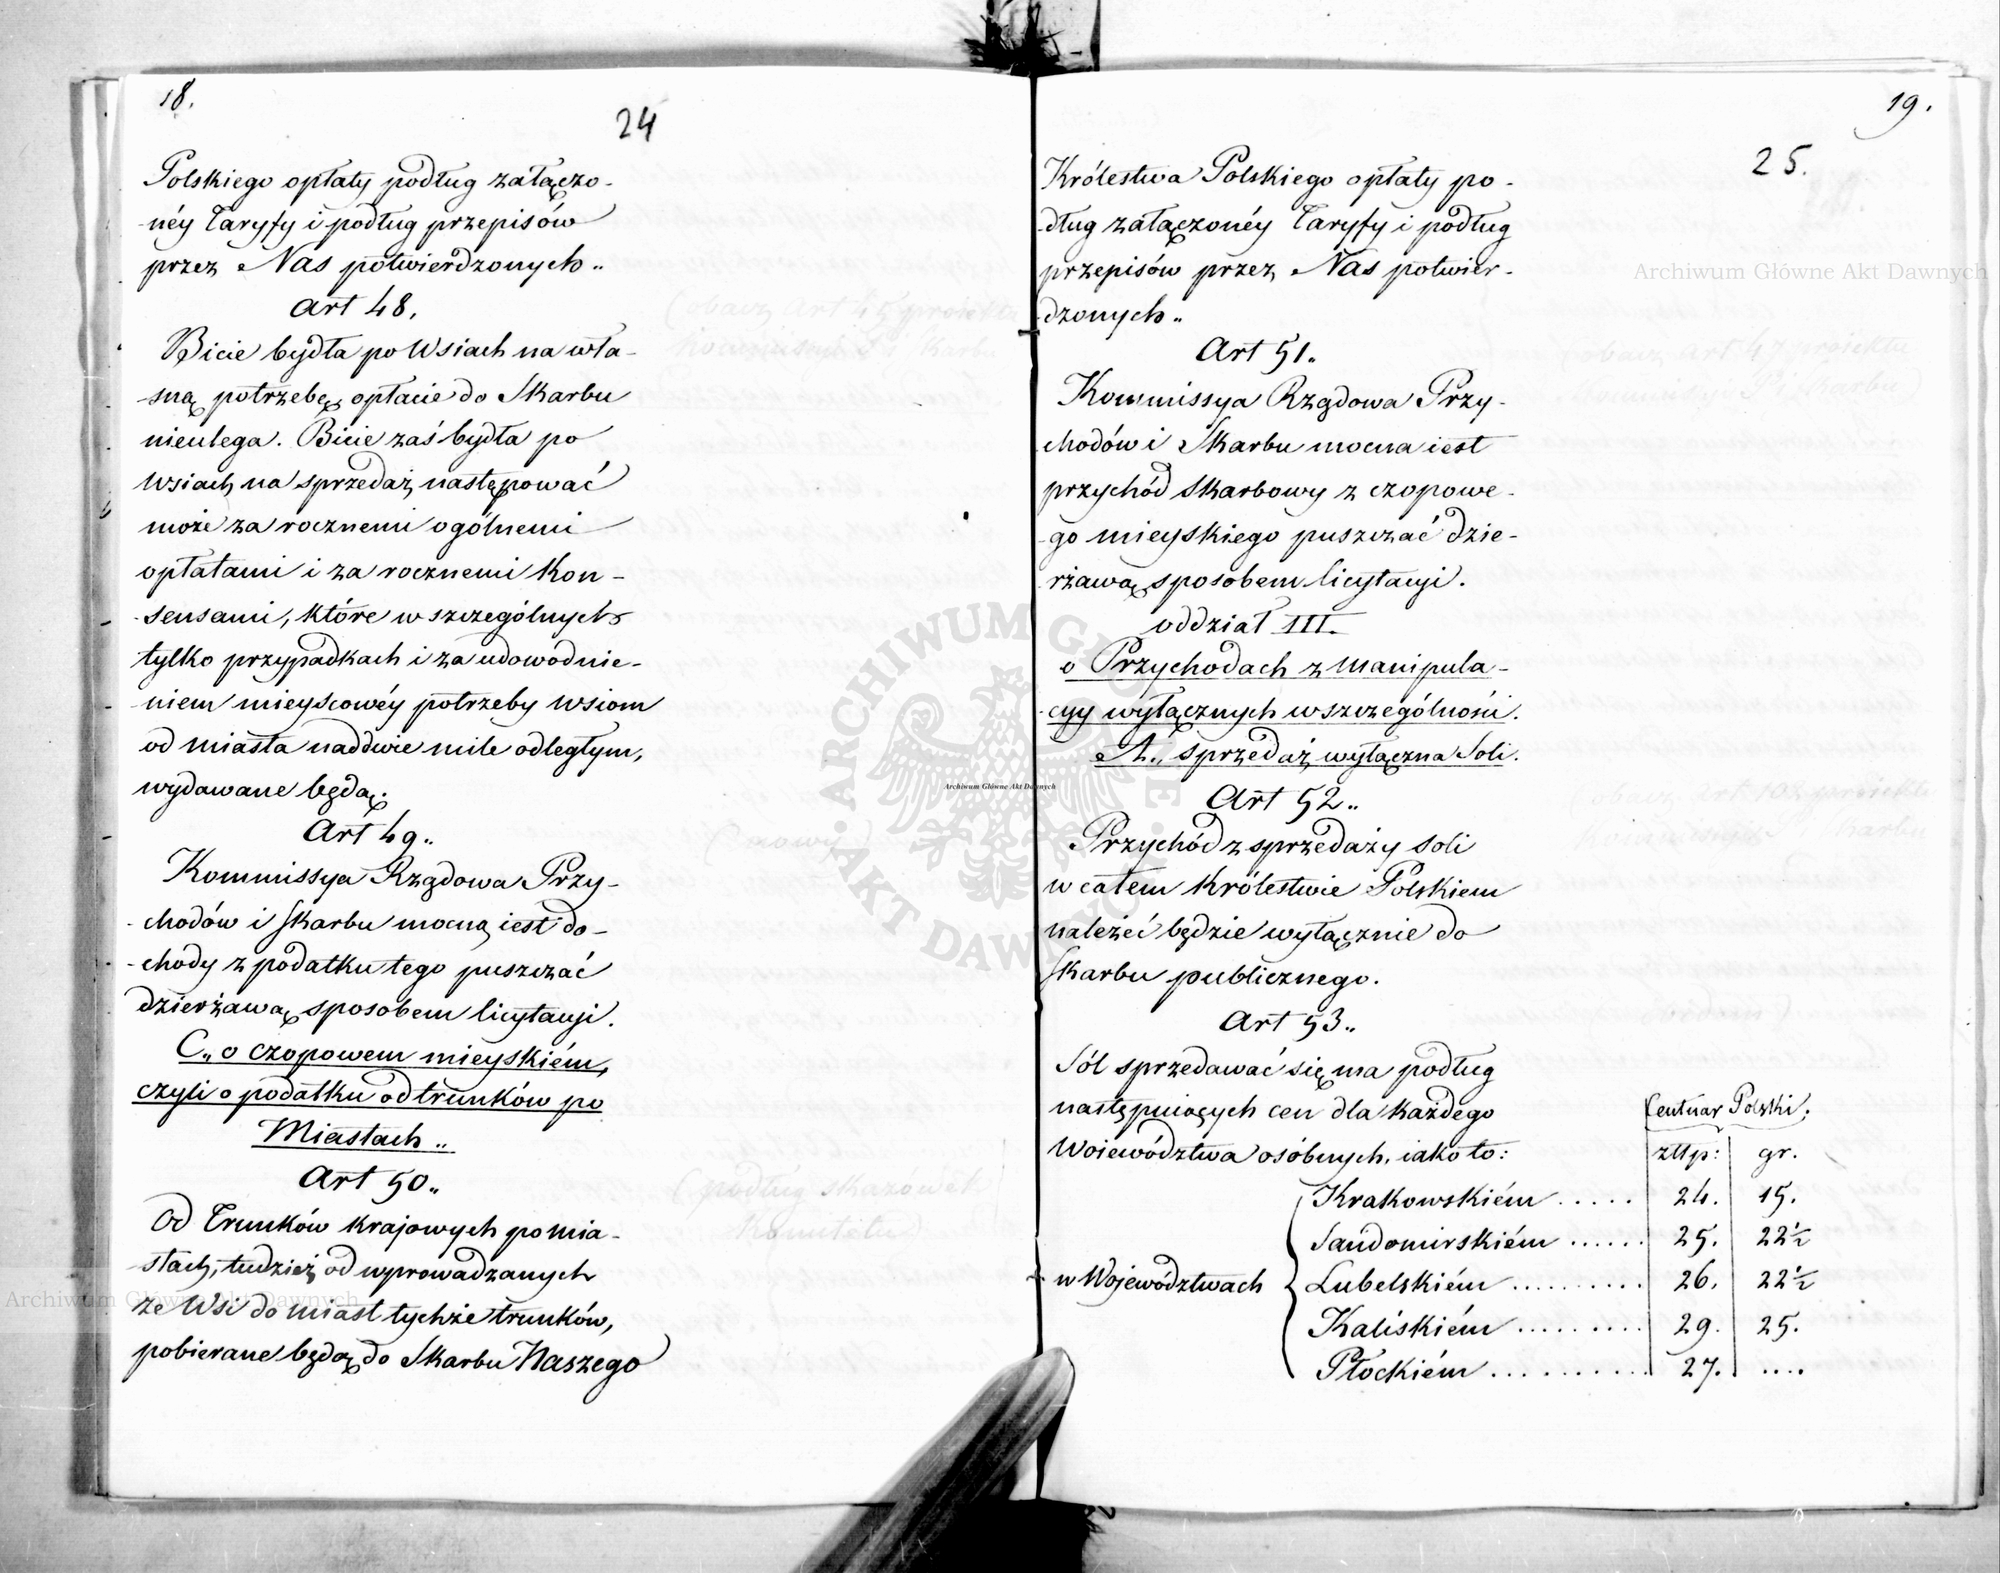 18.
24
Polskiego opłaty podług załączo-
néy Taryfy i podług przepisów
przez Nas potwierdzonych..
Art 48.
Bicie bydła po Wsiach na wła-
sną potrzebę, opłacie do Skarbu
nieulega. Bicie zaś bydła po
Wsiach na sprzedaż następować
może za rocznemi ogólnemi
opłatami i za rocznemi Kon-
sensami, które w szczególnych
tylko przypadkach i za udowodnie-
niem mieyscowéy potrzeby wsiom
od miasta nad dwie mile odległym,
wydawane będą.
Art 49..
Kommissya Rządowa Przy-
chodów i Skarbu mocną iest do-
chody z podatku tego puszczać
dzierżawą sposobem licytacyi.
C,, o czopowem mieyskiém,
czyli o podatku od trunków po
Miastach..
Art 50..
Od Trunków krajowych po mia-
stach, tudzież od wprowadzanych
ze Wsi do miast tychże trunków,
pobierane będą do Skarbu Naszego
(obacz Art 45 proiektu
Kommissyi Skarbu
(nowy)
(podług skazowek
Komitetu)
19.
25.
Królestwa Polskiego opłaty po-
dług załączonéy Taryfy i podług
przepisów przez Nas potwier-
dzonych..
Art 51..
Kommissya Rządowa Przy-
chodów i Skarbu mocna iest
przychód Skarbowy z czopowe-
go mieyskiego puszczać dzie-
rżawą, sposobem licytacyi.
oddział III.
o Przychodach z manipula-
cyy wyłącznych w szczególności.
A,, sprzedaż wyłączna Soli.
Art 52..
Przychód z sprzedaży soli
w całem Królestwie Polskiem
należeć będzie wyłącznie do
Skarbu publicznego.
Art 53..
Sól sprzedawać się ma podług
następuiących cen dla każdego
Woiewództwa osóbnych, iako to:
Centnar Polski.
złłp: gr.
Krakowskiém ..... 24. 15.
Sandomirskiém ...... 25. 22½
w Województwach Lubelskiém .......... 26. 22½
Kaliskiém ......... 29. 25.
Płockiém ........... 27. ....
(obacz Art 47 proiektu
Kommissyi Skarbu)
(obacz proiektu
Kommissyi Skarbu
Archiwum Główne Akt Dawnych
Archiwum Główne Akt Dawnych
Archiwum Główne Akt Dawnych
ARCHIWUM GŁÓWNE AKT DAWNYCH